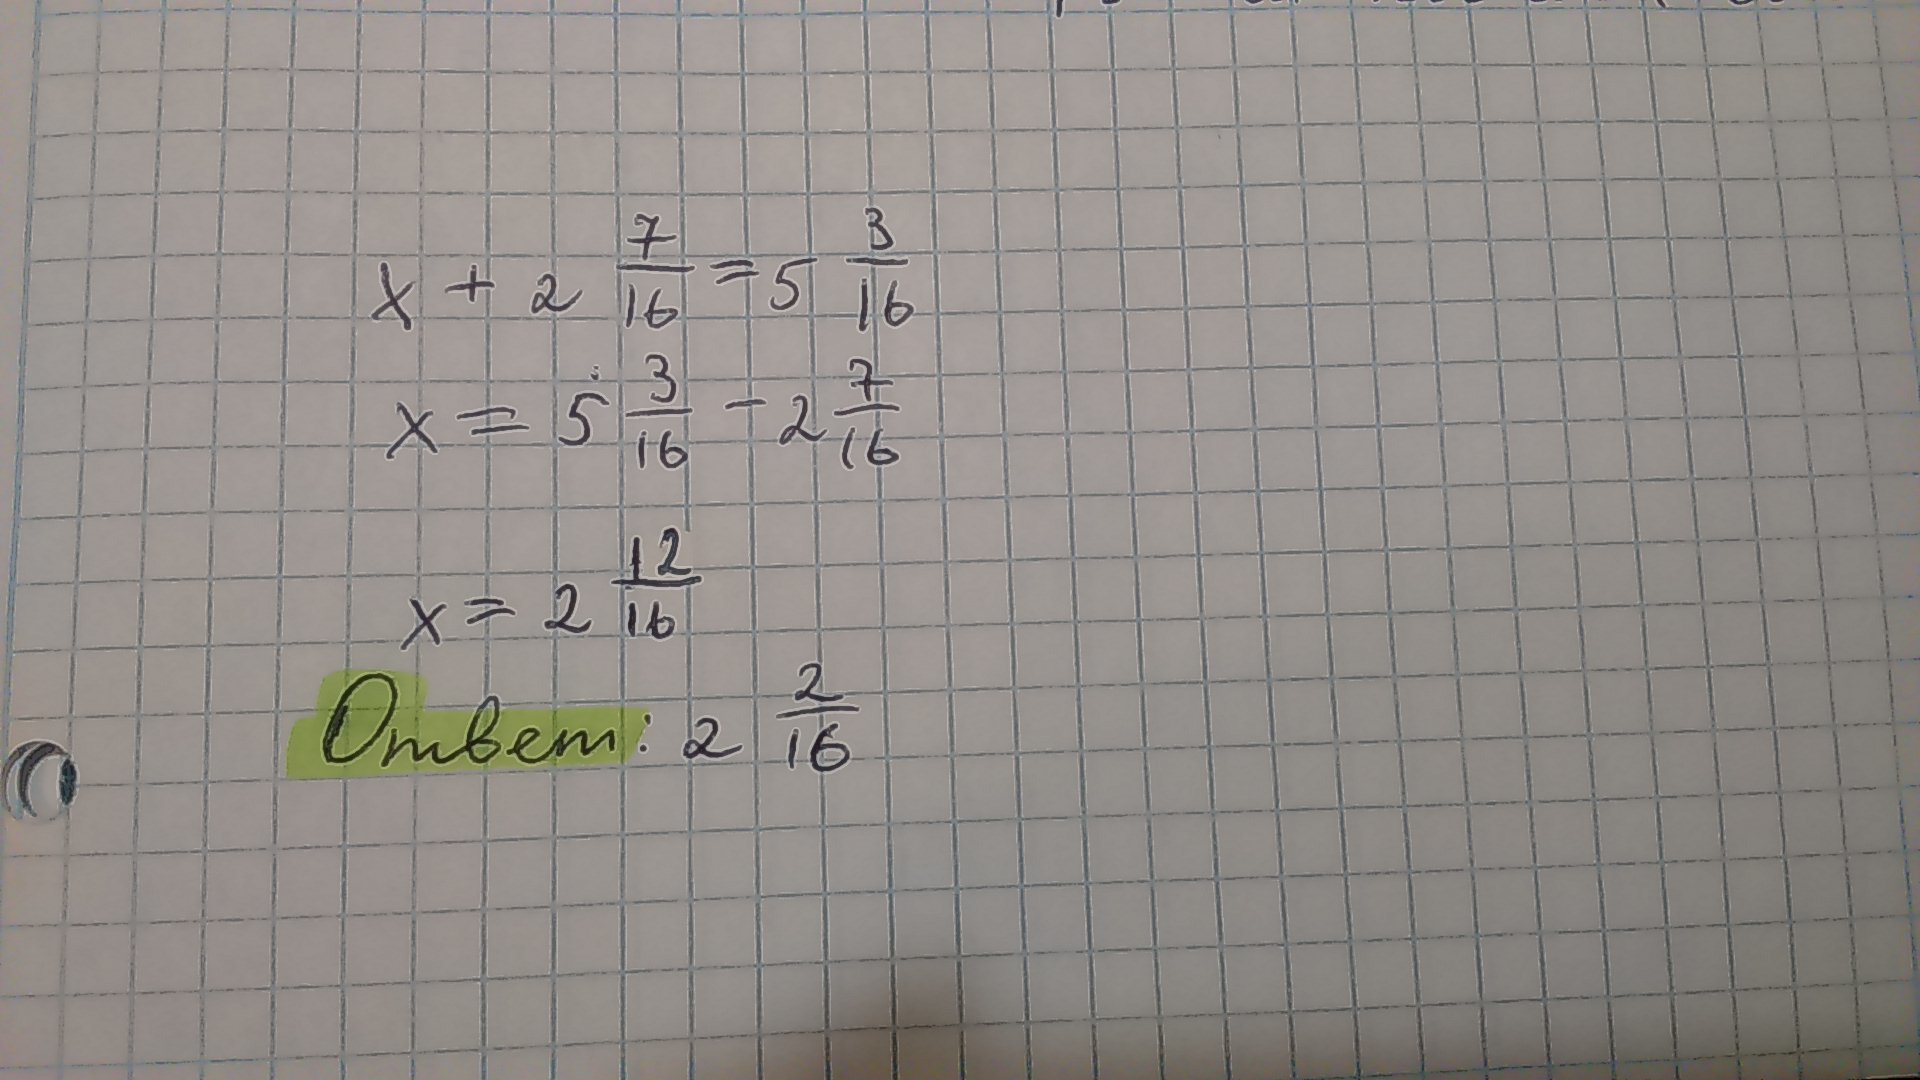 x + 2 7/16 = 5 3/16
x = 5 3/16 - 2 7/16
x = 2 12/16
Ответ: 2 2/16